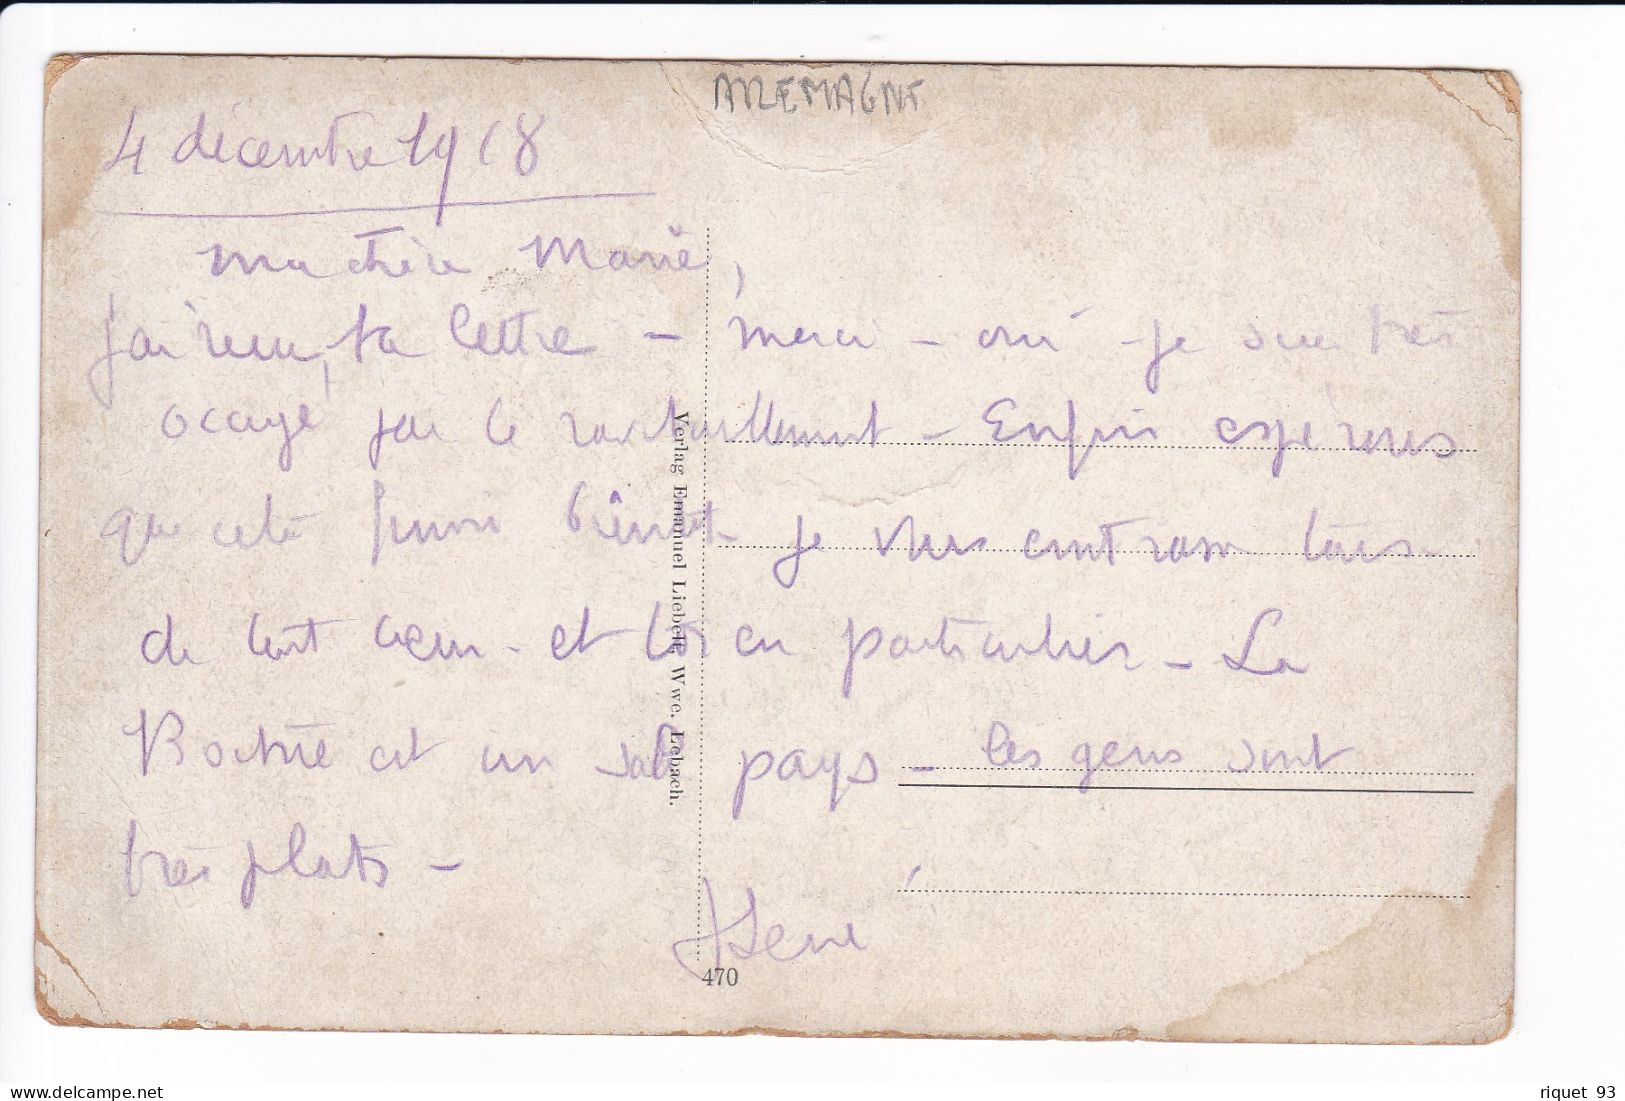 ALLEMAGNE
4 décembre 1918
ma chère Marie,
j'ai reçu ta lettre - merci - oui je suis très
occupé par le ravitaillement - Enfin espérons
que cela finira bientôt - je vous
de tout coeur - et toi en particulier - La
Bochie est un sale pays - les gens sont
très plats -
René
Verlag Emanuel Liebelt Wwe. Lebach.
470
riquet 93